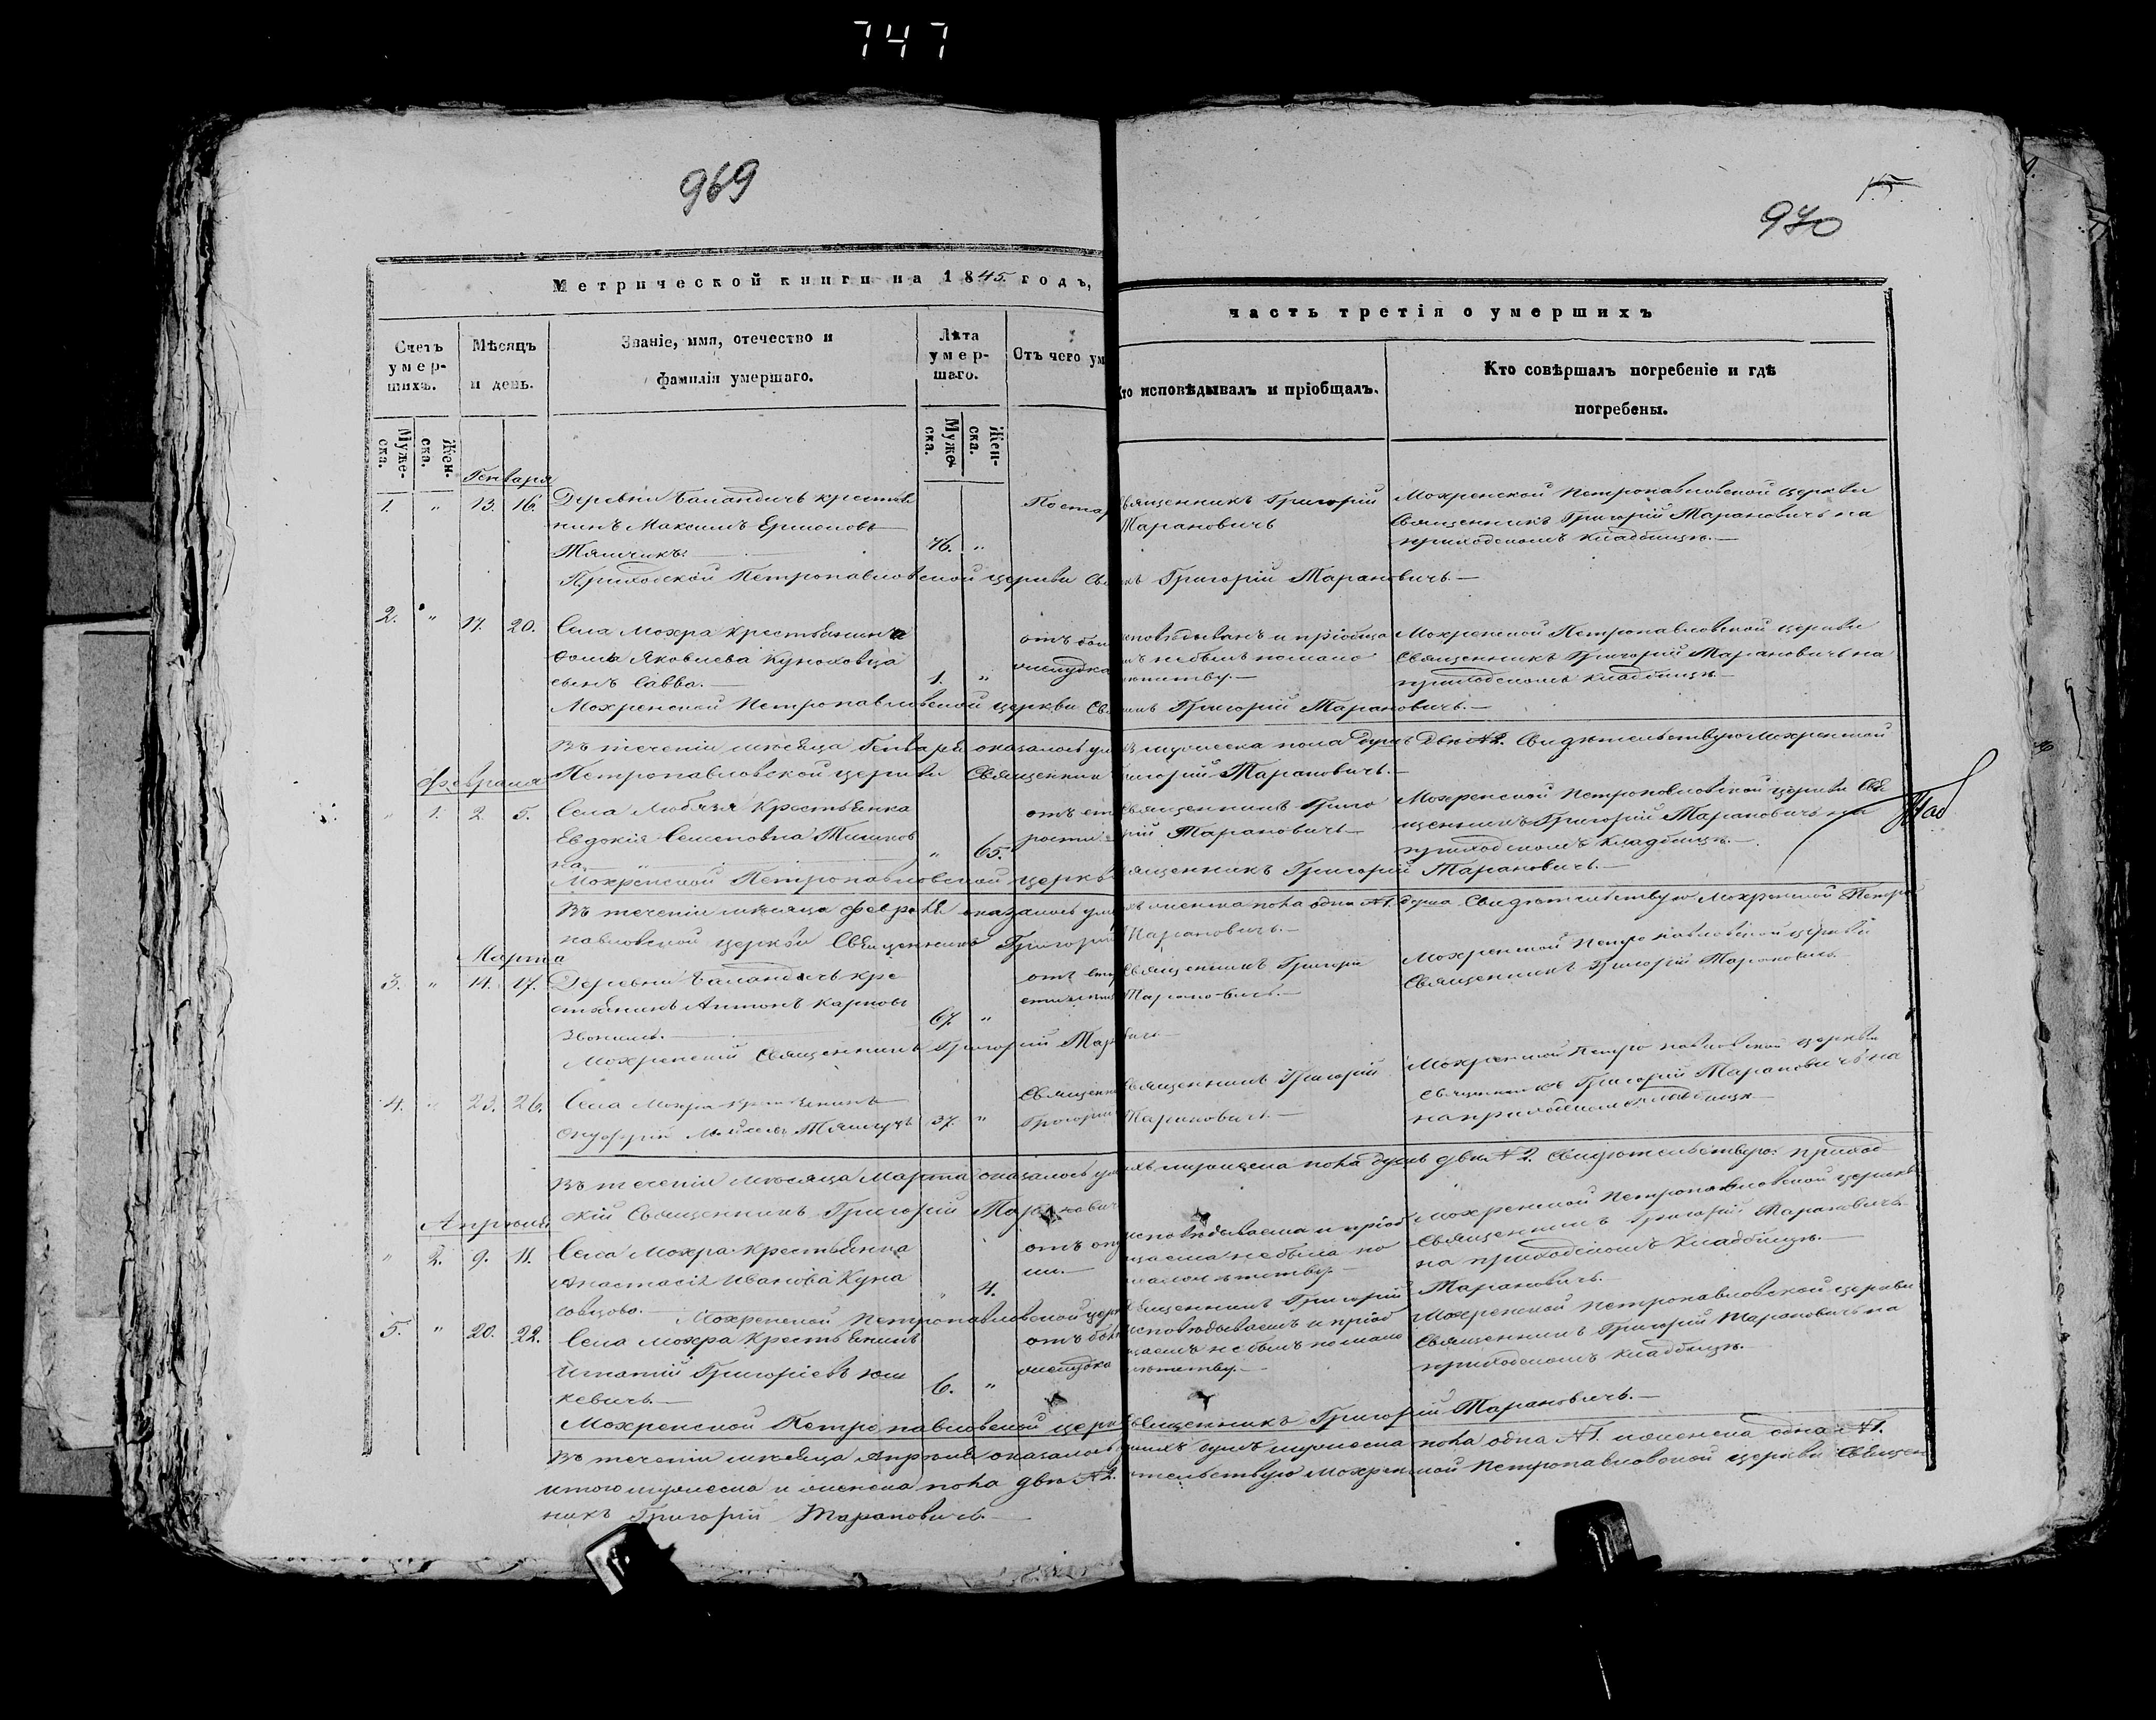 747
969
15.
970
Метрической книги на 1845 годъ,
часть третія о умершихъ
Счетъ умер-шихъ.
Мѣсяцъ и день.
Званіе, имя, отечество и фамилія умершаго.
Лѣта умер-шаго.
Отъ чего ум
Кто исповѣдывалъ и пріобщалъ.
Кто совѣршалъ погребеніе и гдѣ погребены.
Муже-ска.
Жен-ска.
Муже-ска.
Жен-ска.
Генваря
1. " 13. 16. Деревни крестья
нинъ Максимъ Ермоловъ
76. "
По стар
Священникъ Григорій
Тарановичъ
Мохренской Петропавловской церкви
Священникъ Григорій Тарановичъ на
приходскомъ кладбищѣ.—
Приходской Петропавловской церкви Св Григорій Тарановичъ.—
2. " 17. 20. Села Мохра крестьянина
Яковлева
сынъ Савва.—
1. "
отъ бол
желудка
исповѣдыванъ и пріобща
не былъ по мало
лѣтству.—
Мохренской Петропавловской церкви
Священникъ Григорій Тарановичъ на
приходскомъ кладбищѣ—
Мохренской Петропавловской церкви Св Григорій Тарановичъ.—
Въ теченіи мѣсяца Генваря оказалось ум мужеска пола душъ двѣ №2. Свидѣтельствую Мохренской
Петропавловской церкви Священник Григорій Тарановичъ.—
Февраля
" 1. 2. 5. Села Любязя крестьянка
Евдокія Семеновна
на
" 65.
отъ ста
рости.—
Священникъ Григо
рій Тарановичъ—
Мохренской Петропавловской церкви Свя
щенникъ Григорій Тарановичъ на
приходскомъ кладбищѣ.—
Мохренской Петропавловской церкв Священникъ Григорій Тарановичъ.—
Въ теченіи мѣсяца Февраля оказалось ум женска пола одна №1. душа Свидѣтельствую Мохренской Петро
павловской церкви Священникъ Григорій Тарановичъ.—
Марта
3. " 14. 17. Деревни кре
стьянинъ Антонъ Карповъ
67. "
Священникъ Григорій
Тарановичъ.—
Мохренской Петропавловской церкви
Священникъ Григорій Тарановичъ.
Мохренскій Священникъ Григорій Тар
4. " 23. 26. Села Мохра крестьянинъ
37. "
Священн
Григорій
Священникъ Григорій
Тарановичъ.—
Мохренской Петропавловской церкви
Священникъ Григорій Тарановичъ на
на приходскомъ кладбищѣ—
Въ теченіи мѣсяца Марта оказалось ум мужеска пола душъ двѣ №2. Свидѣтельствую: приход
скій Священникъ Григорій Тарановичъ
Апрѣля
" 2. 9. 11. Села Мохра крестьянка
Анастасія Иванова
" 4.
отъ опу
ли.—
исповѣдываема и пріоб
щаема не была по
малолѣтству.—
Мохренской Петропавловской церкви
Священникъ Григорій Тарановичъ
на приходскомъ кладбищѣ.—
Мохренской Петропавловской церк Священникъ Григорій Тарановичъ.—
5. " 20. 22. Села Мохра крестьянинъ
Игнатій Григоріевъ Юш
кевичъ.—
6. "
отъ бол
желудка
исповѣдываемъ и пріоб
щаемъ не былъ по мало
лѣтству.—
Мохренской Петропавловской церкви
Священникъ Григорій Тарановичъ на
приходскомъ кладбищѣ.—
Мохренской Петропавловской церк Священникъ Григорій Тарановичъ.—
Въ теченіи мѣсяца Апрѣля оказалось душъ мужеска пола одна №1. и женска одна №1.
итого мужеска и женска пола двѣ №2. Мохренской Петропавловской церкви Священ
никъ Григорій Тарановичъ.—